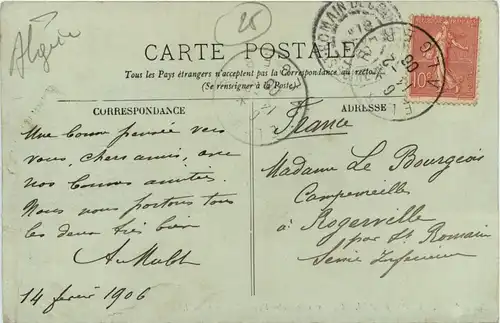 Algérie
25
CARTE POSTALE
Tous les Pays étrangers n'acceptent pas la Correspondance au recto
(Se renseigner à la Poste)
CORRESPONDANCE
Une bonne pensée vers
vous, chers amis, avec
nos bonnes amitiés.
Nous nous portons tous
les deux très bien
14 février 1906
ADRESSE
France
Madame Le Bourgeois
à Rogerville
par St Romain
Seine Inférieure
10